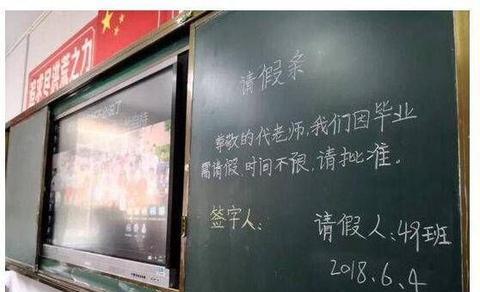 追求尽洪荒之力
请假条
尊敬的代老师，我们因毕业
需请假，时间不限，请批准。
签字人：
请假人：49班
2018、6、4